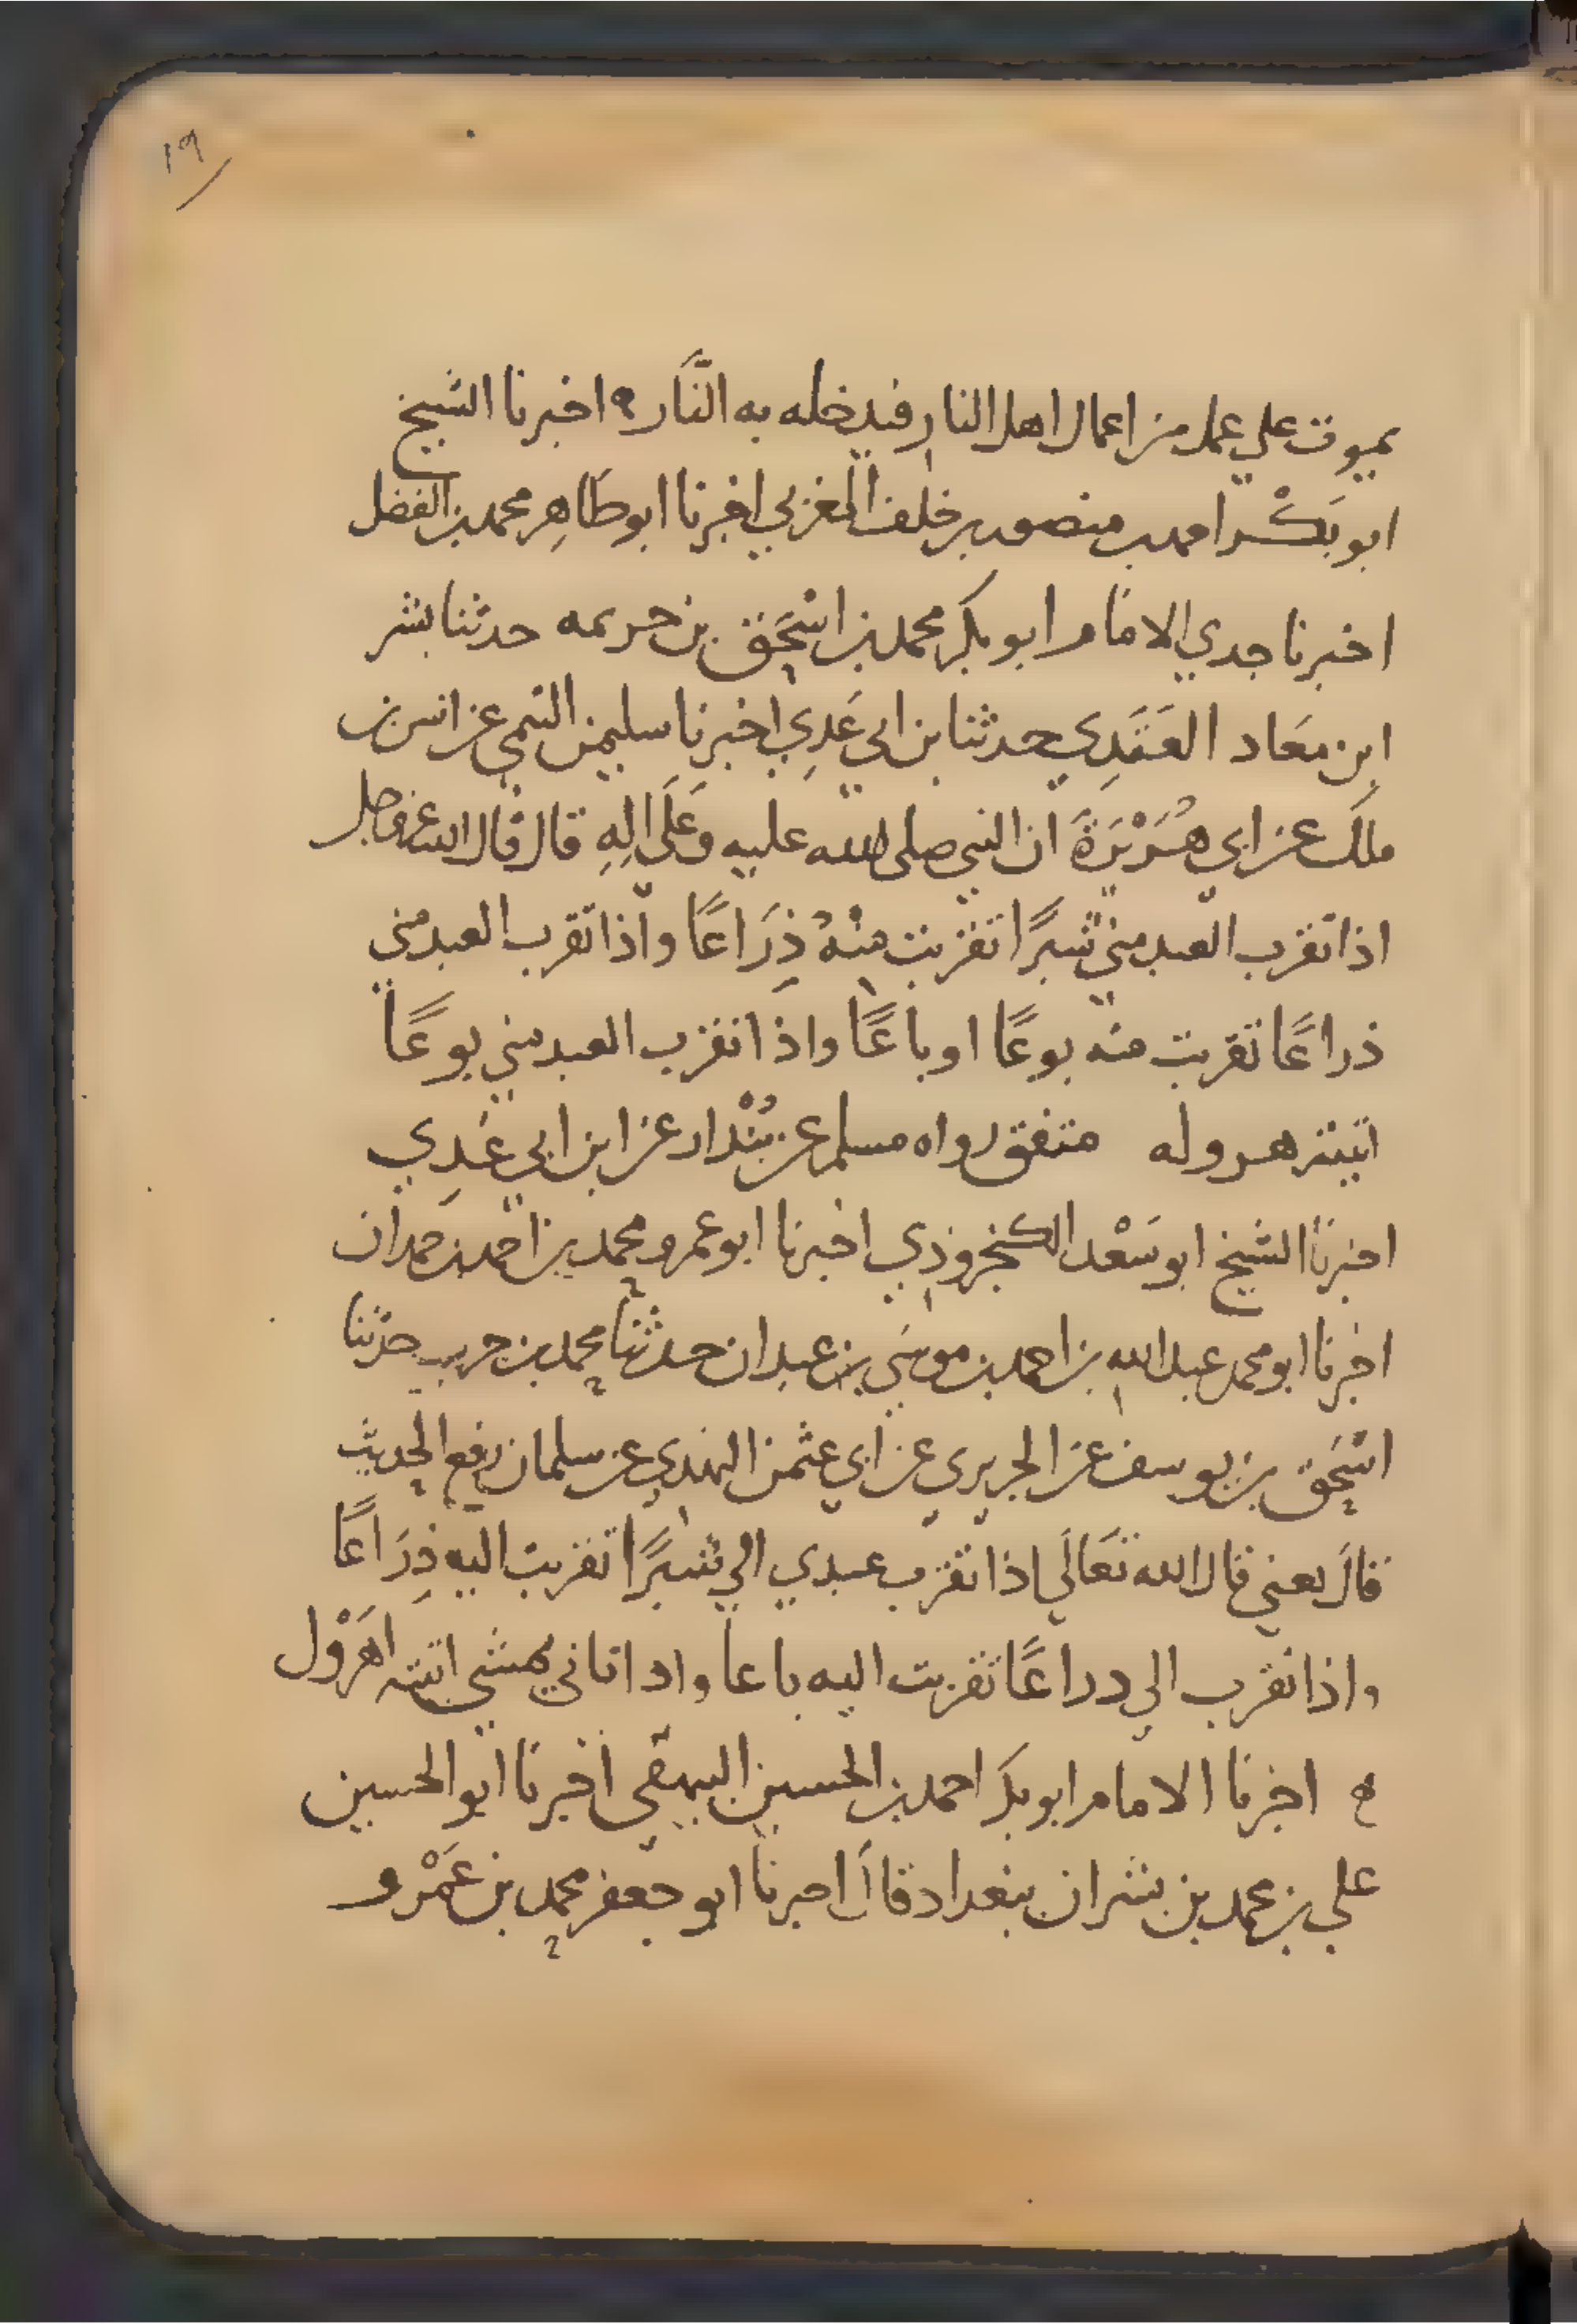 ١٩
يموت علي عمل من اعمال اهل النار فيدخله به النَّار ه اخبرنا الشيخ
ابو بَكْر احمد بن منصور بن خلف المغربي اخبرنا ابو طَاهِر محمد بن الفضل
اخبرنا جدي الامام ابو بكر محمد بن اسْحَق بن خريمه حدثنا بشر
ابن معَاد العَقَدِي حدثنا بن ابي عَدِي اخبرنا سليمن التيمي عن انس بن
ملك عن ابي هُرَيْرَةَ ان النبي صلى الله عليه وَعَلَى الِهِ قال قال الله عز وجل
اذا تقرب العبد مني شبرًا تقربت مِنْهُ ذِرَاعًا واذا تقرب العبد مني
ذراعًا تقربت منه بوعًا او باعًا واذا تقرب العبد مني بوعًا
اتيته هروله متفق رواه مسلم عن بُنْدار عن ابن ابي عَدِي
اخبرنا الشيخ ابو سَعْد الكنجروذي اخبرنا ابو عمرو محمد بن احمد بن حمدان
اخبرنا ابو محمد عبد الله بن احمد بن موسَي بن عبدان حدثنا محمد بن حرب حدثنا
اسْحَق بن يوسف عن الجريري عن ابي عثمن النهدي عن سلمان رفع الحديث
قالَ يعني قال الله تَعَالَي اذا تقرب عبدي الي شبرًا تقربت اليه ذِرَاعًا
واذا تقرب الي دراعًا تقربت اليه باعا واد اتاني يمشي اتيته اهَرْوِل
ه اخبرنا الامام ابو بكر احمد بن الحسين البيهقي اخبرنا ابو الحسين
علي بن محمد بن بشران ببغداد قال اخبرنا ابو جعفر محمد بن عَمْرو